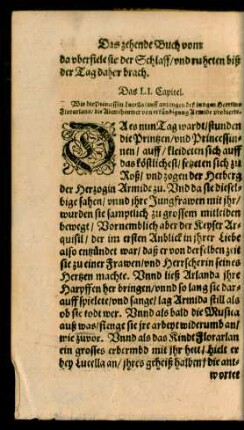 Das zehende Buch vom
da vberfiele sie der Schlaff/ vnd ruheten biß
der Tag daher brach.
Das LI. Capitel.
Wie die Princessin
DA es nun Tag wardt/ stunden
die Printzen/ vnd Princessin-
nen/ auff/ kleideten sich auff
das köstlichest/ setzten sich zu
Roß/ vnd zogen der Herberg
der Hertzogin Armide zu. Vnd da sie diesel-
bige sahen/ vnnd ihre Jungfrawen mit ihr/
wurden sie samptlich zu grossem mitleiden
bewegt/ Vornemblich aber der Keyser Ar-
quisil/ der im ersten Anblick in ihrer Liebe
also entzündet war/ daß er von derselben zeit
sie zu einer Frawen/ vnd Herrscherin seines
Hertzen machte. Vnnd ließ Arlanda ihre
Harpffen her bringen/ vnnd so lang sie dar-
auff spielete/ vnd sange/ lag Armida still als
ob sie todt wer. Vnnd als bald die Musica
auß was/ fienge sie jre arbeyt widerumb an/
wie zuvor. Vnnd als das Kindt Florarlan
ein grosses erbermbd mit jhr hett/ hielt er
bey Lucella an/ jhres geheiß halben/ die ant-
wortet